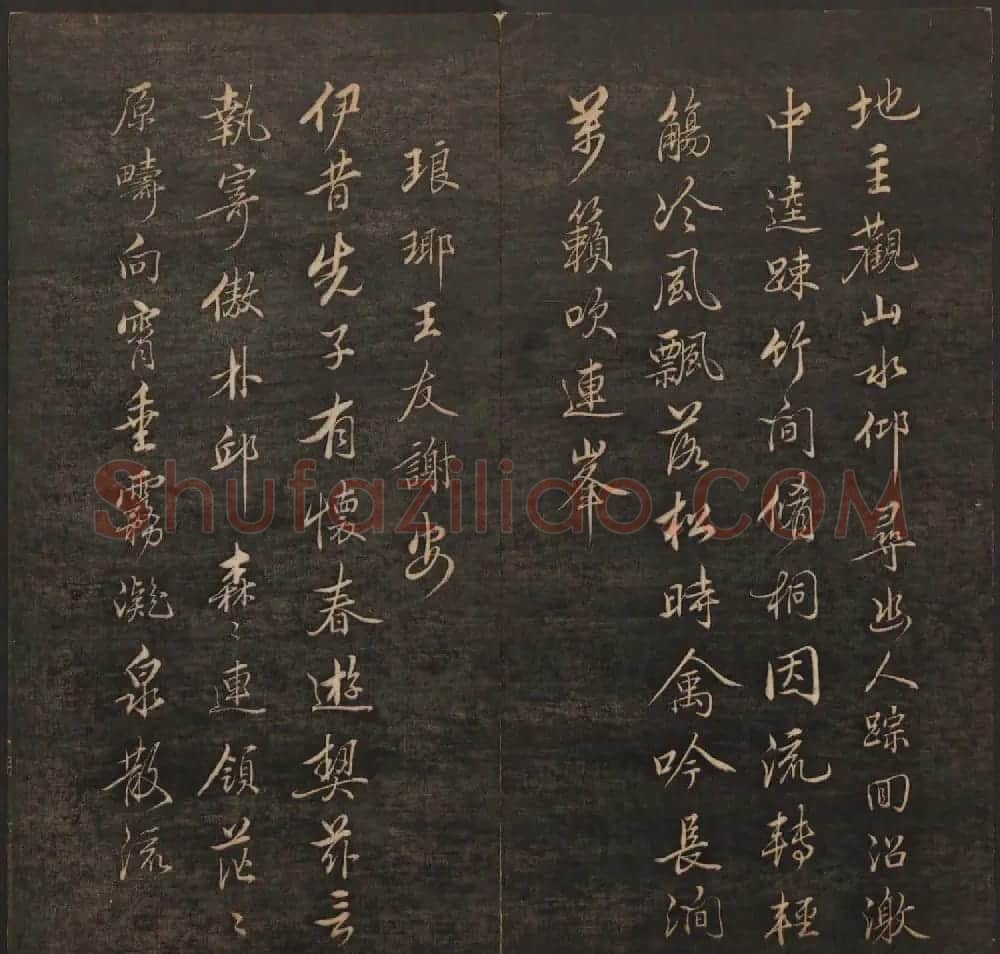 地主觀山水仰尋幽人踪囘沿激
中逵疎竹间脩桐因流轉輕
觴冷風飄落松時禽吟長澗
萬籟吹連峯
琅瑘王友謝安
伊昔先子有懷春遊契茲言
執寄傲林邱森〻連領茫〻
原疇向霄垂霧凝泉散流
Shufaziliao.COM